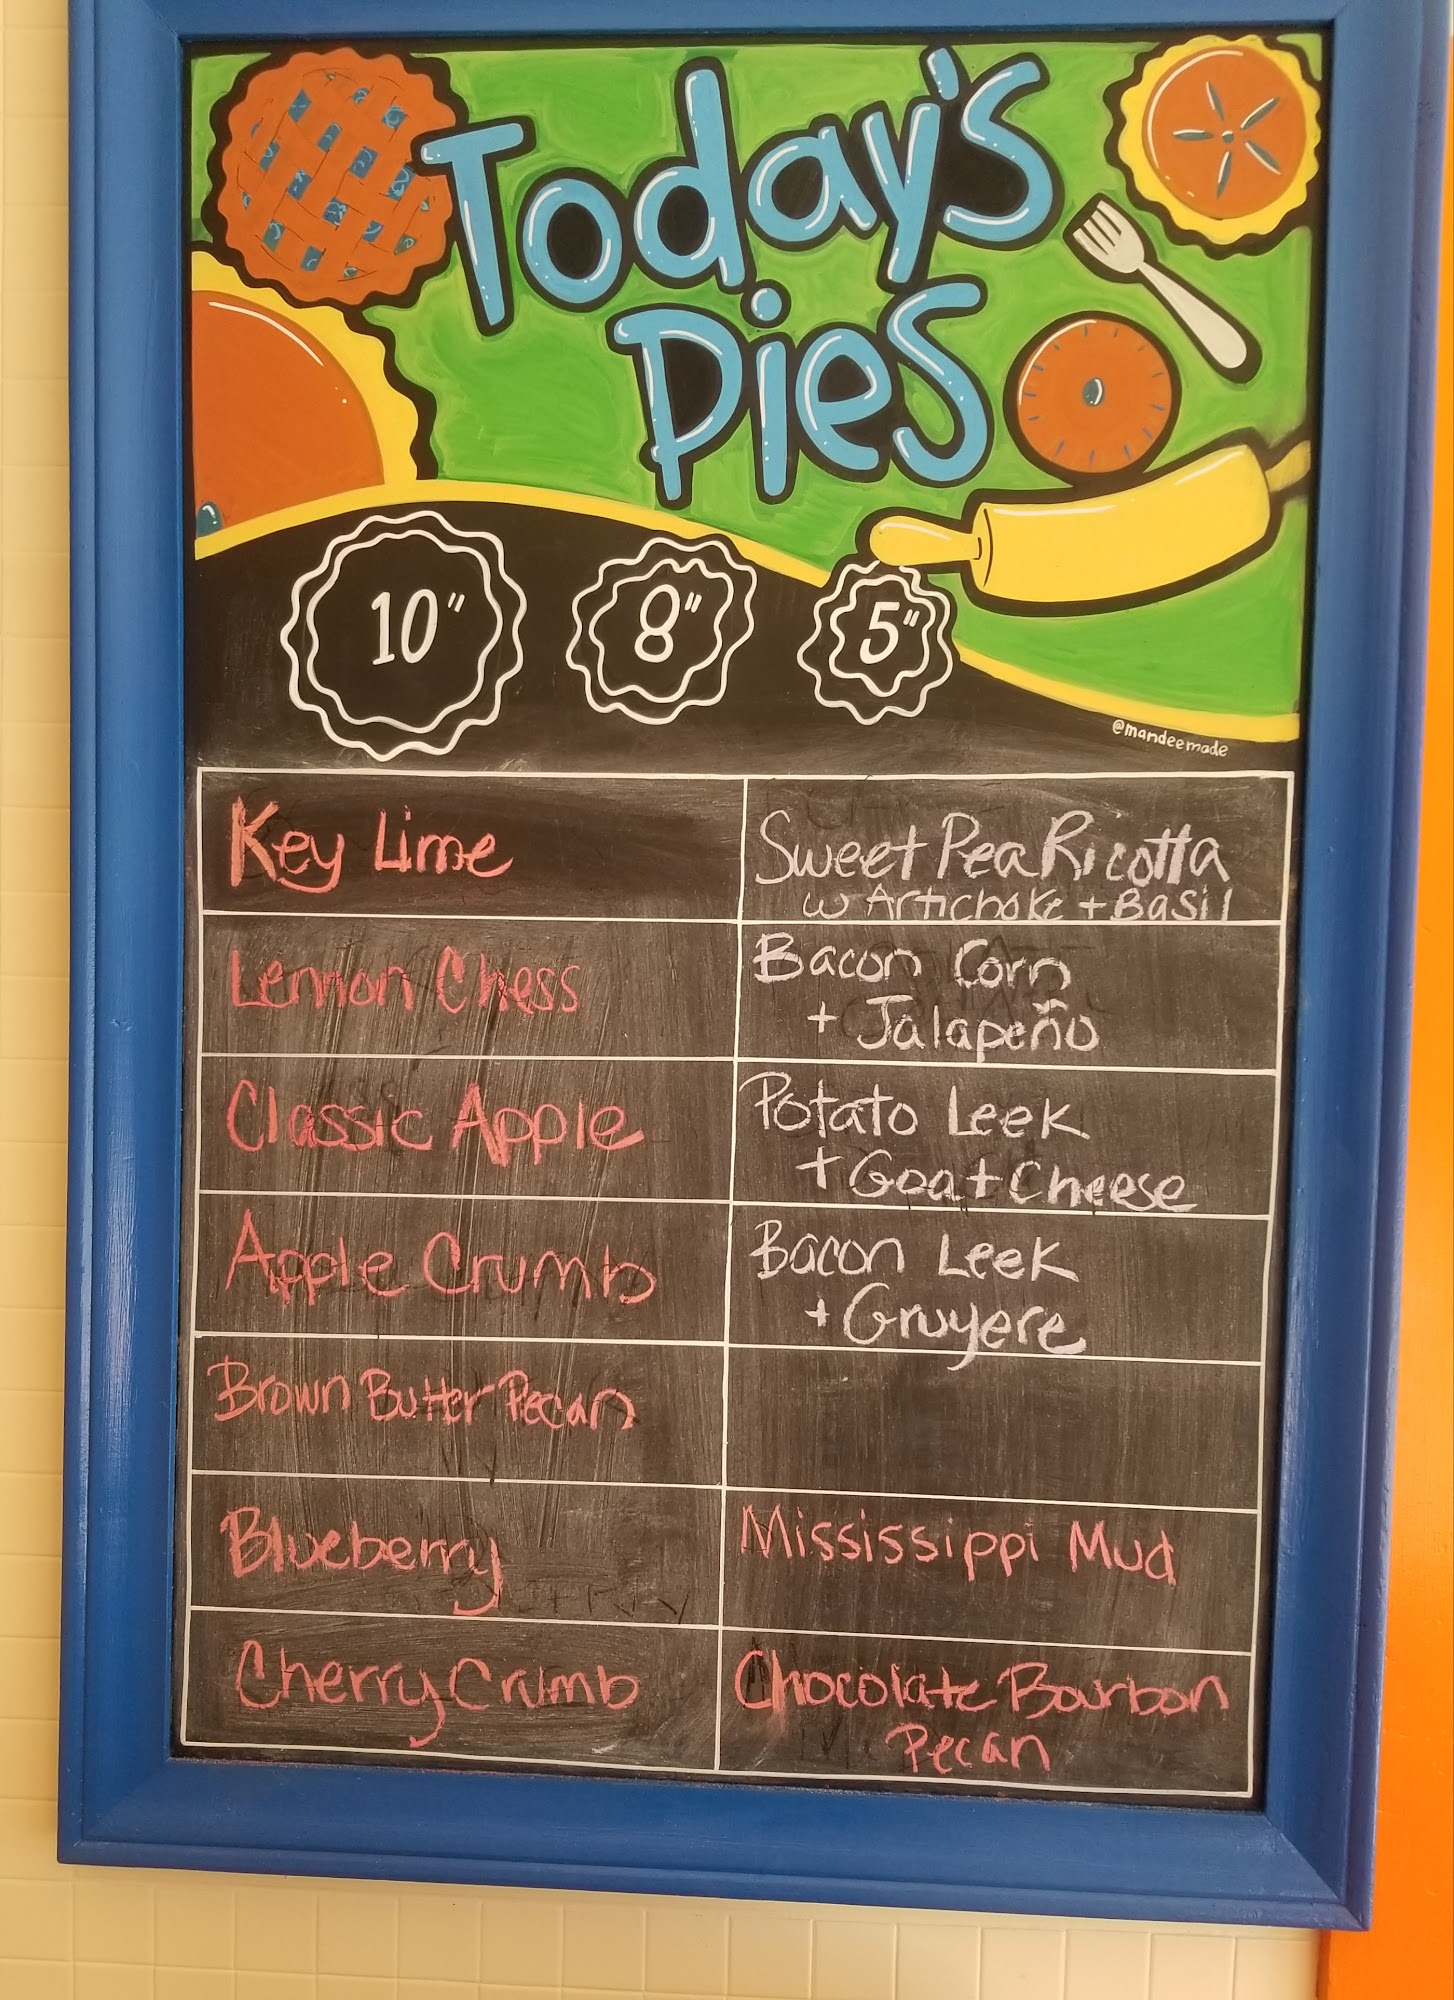 Today's
Pies
10"
8"
5"
@mandeemade
Key Lime
Lemon Chess
Classic Apple
Apple Crumb
Brown Butter Pecan
Blueberry
Cherry Crumb
Sweet Pea Ricotta
w Artichoke + Basil
Bacon Corn
+ Jalapeño
Potato Leek
+ Goat Cheese
Bacon Leek
+ Gruyere
Mississippi Mud
Chocolate Bourbon
Pecan